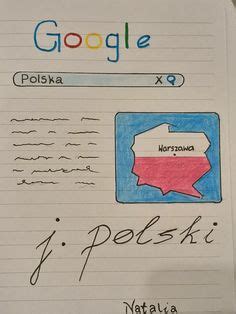 Google
Polska X
Warszawa
j. polski
Natalia